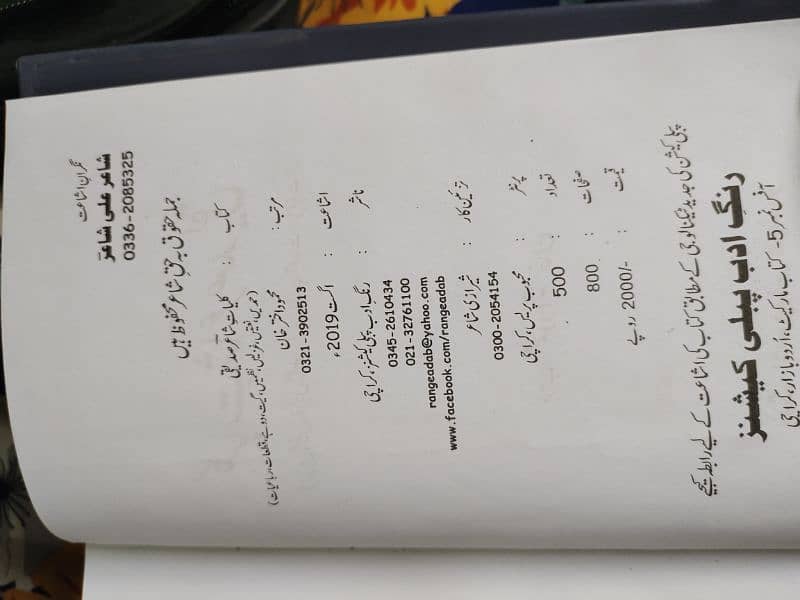 نگران اشاعت
شاعر علی شاعر
0336-2085325
جملہ حقوق بہ حقِ شاعر محفوظ ہیں
کتاب : کلیاتِ شاعر صدیقی
(حمدیں، نعتیں، غزلیں، نظمیں، گیت، دوہے، قطعات، رباعیات)
مرتب : محمود اختر خان
0321-3902513
اشاعت : اگست 2019ء
ناشر : رنگِ ادب پبلی کیشنز، کراچی
0345-2610434
021-32761100
rangeadab@yahoo.com
www.facebook.com/rangeadab
تزئین کار : شیرازی شاعر
0300-2054154
پرنٹر : محبوب پریس، کراچی
تعداد : 500
صفحات : 800
قیمت : 2000/- روپے
پبلی کیشن کی جدید ٹیکنالوجی کے مطابق کتاب کی اشاعت کے لیے رابطہ کیجیے
رنگِ ادب پبلی کیشنز
آفس نمبر 5- کتاب مارکیٹ، اُردو بازار، کراچی